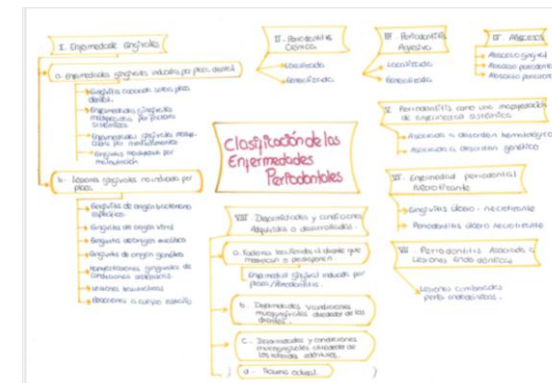 I. Enfermedades gingivales
a. Enfermedades gingivales inducidas por placa dental
Gingivitis asociada unica placa
dental.
Enfermedades gingivales
modificadas por factores
sistémicos
Enfermedades gingivales
por medicamentos
Gingivitis modificada por
malnutrición
b. Lesiones gingivales no inducida por
placa.
Gingivitis de origen bacteriano
específico
Gingivitis de origen viral
Gingivitis de origen micótico
Gingivitis de origen genético
Manifestaciones gingivales de
condiciones sistémicas
Lesiones traumáticas
Reacciones a cuerpo extraño
II. Periodontitis
Crónica
Localizada
Generalizada
III. Periodontitis
Agresiva
Localizada
Generalizada
IV Abscesos
Absceso gingival
Absceso periodontal
Absceso pericoronal
Clasificación de las
Enfermedades
Periodontales
V. Periodontitis como una manifestación
de enfermedad sistémica
Asociada a desorden hematológico
Asociada a desorden genético
VI. Enfermedad periodontal
Necrotizante
Gingivitis úlcero - necrotizante
Periodontitis úlcero necrotizante
VII. Periodontitis Asociada a
Lesiones Endodónticas
Lesiones combinadas
perio endodónticas.
VIII. Deformidades y condiciones
Adquiridas o desarrolladas.
a. Factores localizados al diente que
modifican o predisponen
Enfermedad gingival inducida por
placa/Periodontitis.
b. Deformidades y condiciones
mucogingivales alrededor de los
dientes.
c. Deformidades y condiciones
mucogingivales alrededor de
los rebordes edéntulos.
d. Trauma oclusal.